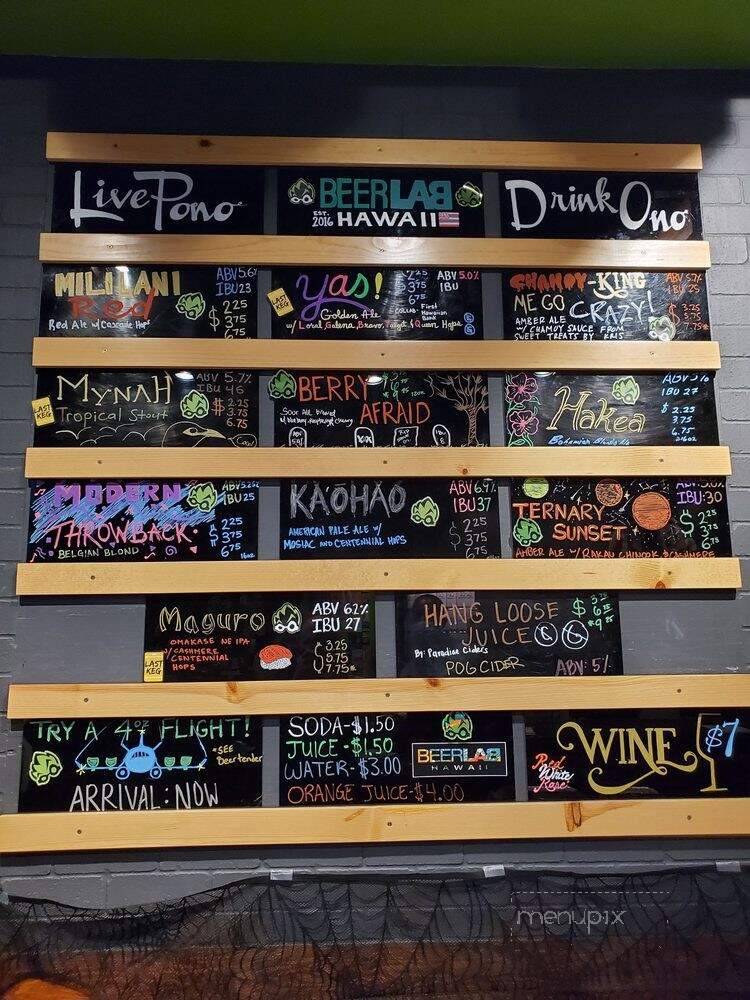 Live Pono
BEERLAB
EST. 2016 HAWAII
Drink Ono
MILILANI
Red
Red Ale w/ Cascade Hops
ABV 5.6%
IBU 23
$ 2.25
3.75
6.75
LAST KEG
Yas!
Golden Ale
w/ Loral, Galena, Bravo, Target & Queen Hops
2.25
3.75
6.75
COLLAB:
First Hawaiian Bank
ABV 5.0%
IBU
CHAMOY-KING
ME GO CRAZY!
AMBER ALE
W/ CHAMOY SAUCE FROM
SWEET TREATS BY KRIS
ABV 5.7%
IBU 25
$ 3.25
5.75
7.75
LAST KEG
MYNAH
Tropical Stout
ABV 5.7%
IBU 46
$ 2.25
3.75
6.75
BERRY
AFRAID
Sour Ale
Hakea
Bohemian
IBU 27
$ 2.25
3.75
6.75
MODERN
THROWBACK
BELGIAN BLOND
IBU 25
$ 2.25
3.75
6.75
KA'ŌHAO
AMERICAN PALE ALE W/
MOSIAC AND CENTENNIAL HOPS
ABV 6.9%
IBU 37
$ 2.25
3.75
6.75
TERNARY
SUNSET
AMBER ALE W/ RAKAU CHINOOK & CASHMERE
IBU: 30
$ 2.25
3.75
6.75
Maguro
OMAKASE NE IPA
W/ CASHMERE
CENTENNIAL
HOPS
LAST KEG
ABV 6.2%
IBU 27
$ 3.25
5.75
7.75
HANG LOOSE
JUICE
By: Paradise Ciders
POG CIDER
ABV: 5%
TRY A 4oz FLIGHT!
*SEE
Beertender
ARRIVAL: NOW
SODA-$1.50
JUICE-$1.50
WATER-$3.00
ORANGE JUICE-$4.00
BEERLAB
HAWAII
WINE
$7
Red
White
Rosé
menupix